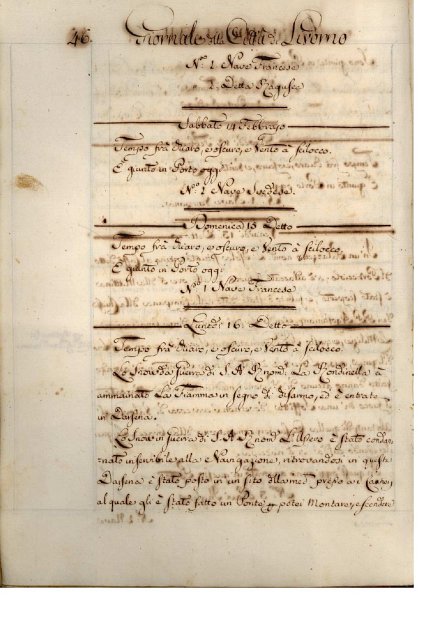 46. Giornale di Città di Livorno
N.° 1 Nave Francese
2. Detta Ragusee
Sabbato 14 Febbrajo
Tempo frà chiaro, e oscuro, e Vento à scilocco.
E' giunto in Porto oggi
N.° 1 Nave Svedese
Domenica 15 Detto
Tempo frà chiaro, e oscuro, e Vento à scilocco.
E giunto in Porto oggi
N.° 1 Nave Francese
Lunedì 16. Detto
Tempo frà chiaro, e oscuro, e Vento à scilocco.
Lo Snow da guerra di S. A. R. nom.° La Rondinella è
ammainato La Fiamma in segno di disarmo, ed è entrato
in Darsena.
Lo Snow in guerra di S. A. R. nom.° è stato condan
nato inservibile alla Navigazione, ritrovandosi in questa
Darsena è stato posto in un sito della med.a presso ai
al quale gli è stato fatto un Ponte per potei Montare, e scendere